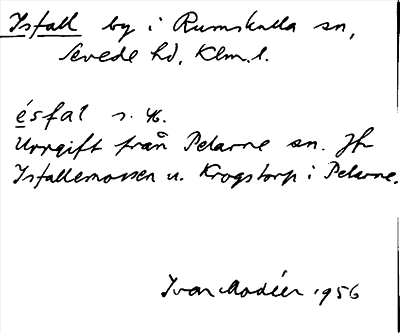 Isfall by i Rumskulla sn,
Sevede hd, Klm. l.
ésfal s. 46.
Uppgift från Pelarne sn. Jfr
Isfallemossen u. Krogstorp i Pelarne.
Ivar Modéer 1956